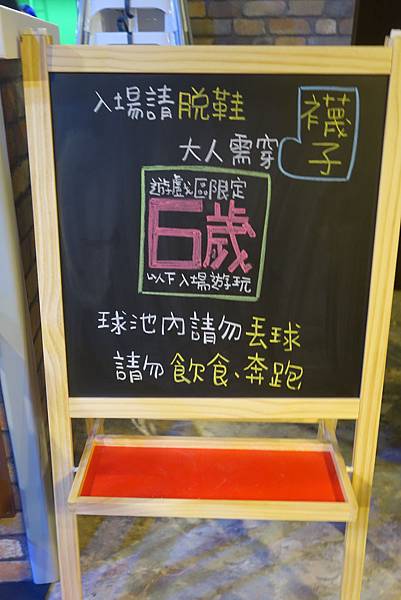 入場請脫鞋
大人需穿襪子
遊戲區限定
6歲
以下入場遊玩
球池內請勿丟球
請勿飲食、奔跑